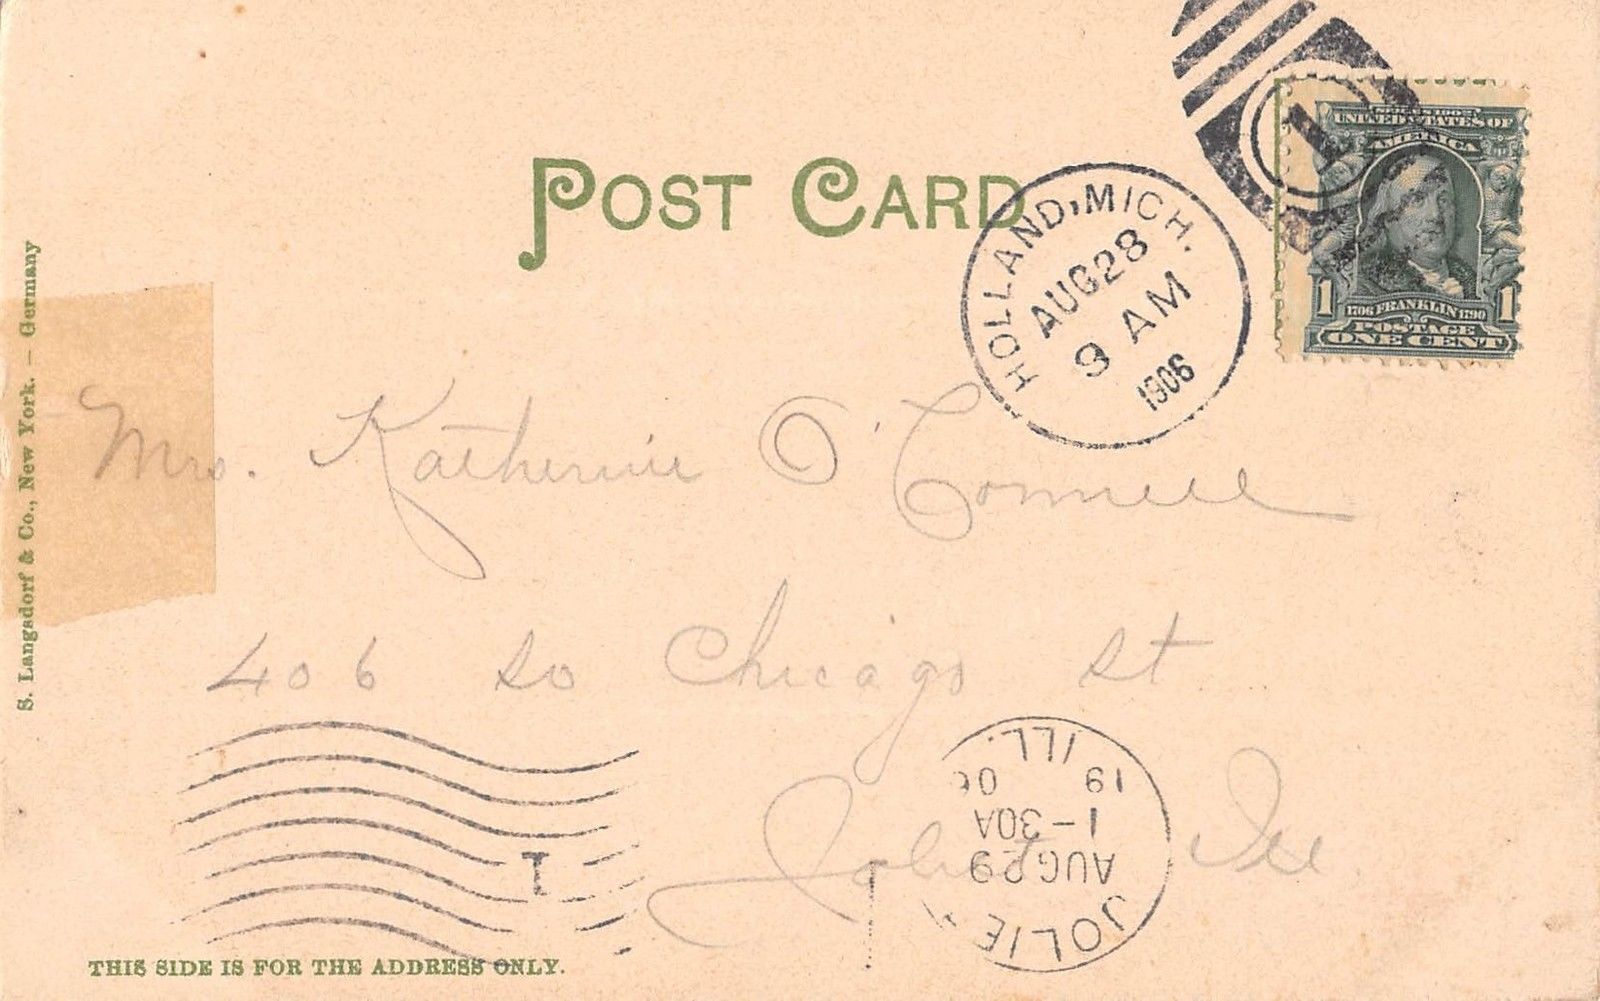 POST CARD
HOLLAND, MICH.
AUG 28
9 AM
1906
1
UNITED STATES OF
AMERICA
1 1706 FRANKLIN 1790 1
POSTAGE
ONE CENT
S. Langsdorf & Co., New York. – Germany
Mrs. Katherine O'Connell
406 So Chicago St
Joliet Ill
JOLIE
AUG 29
1-30A
19 06
ILL.
1
THIS SIDE IS FOR THE ADDRESS ONLY.